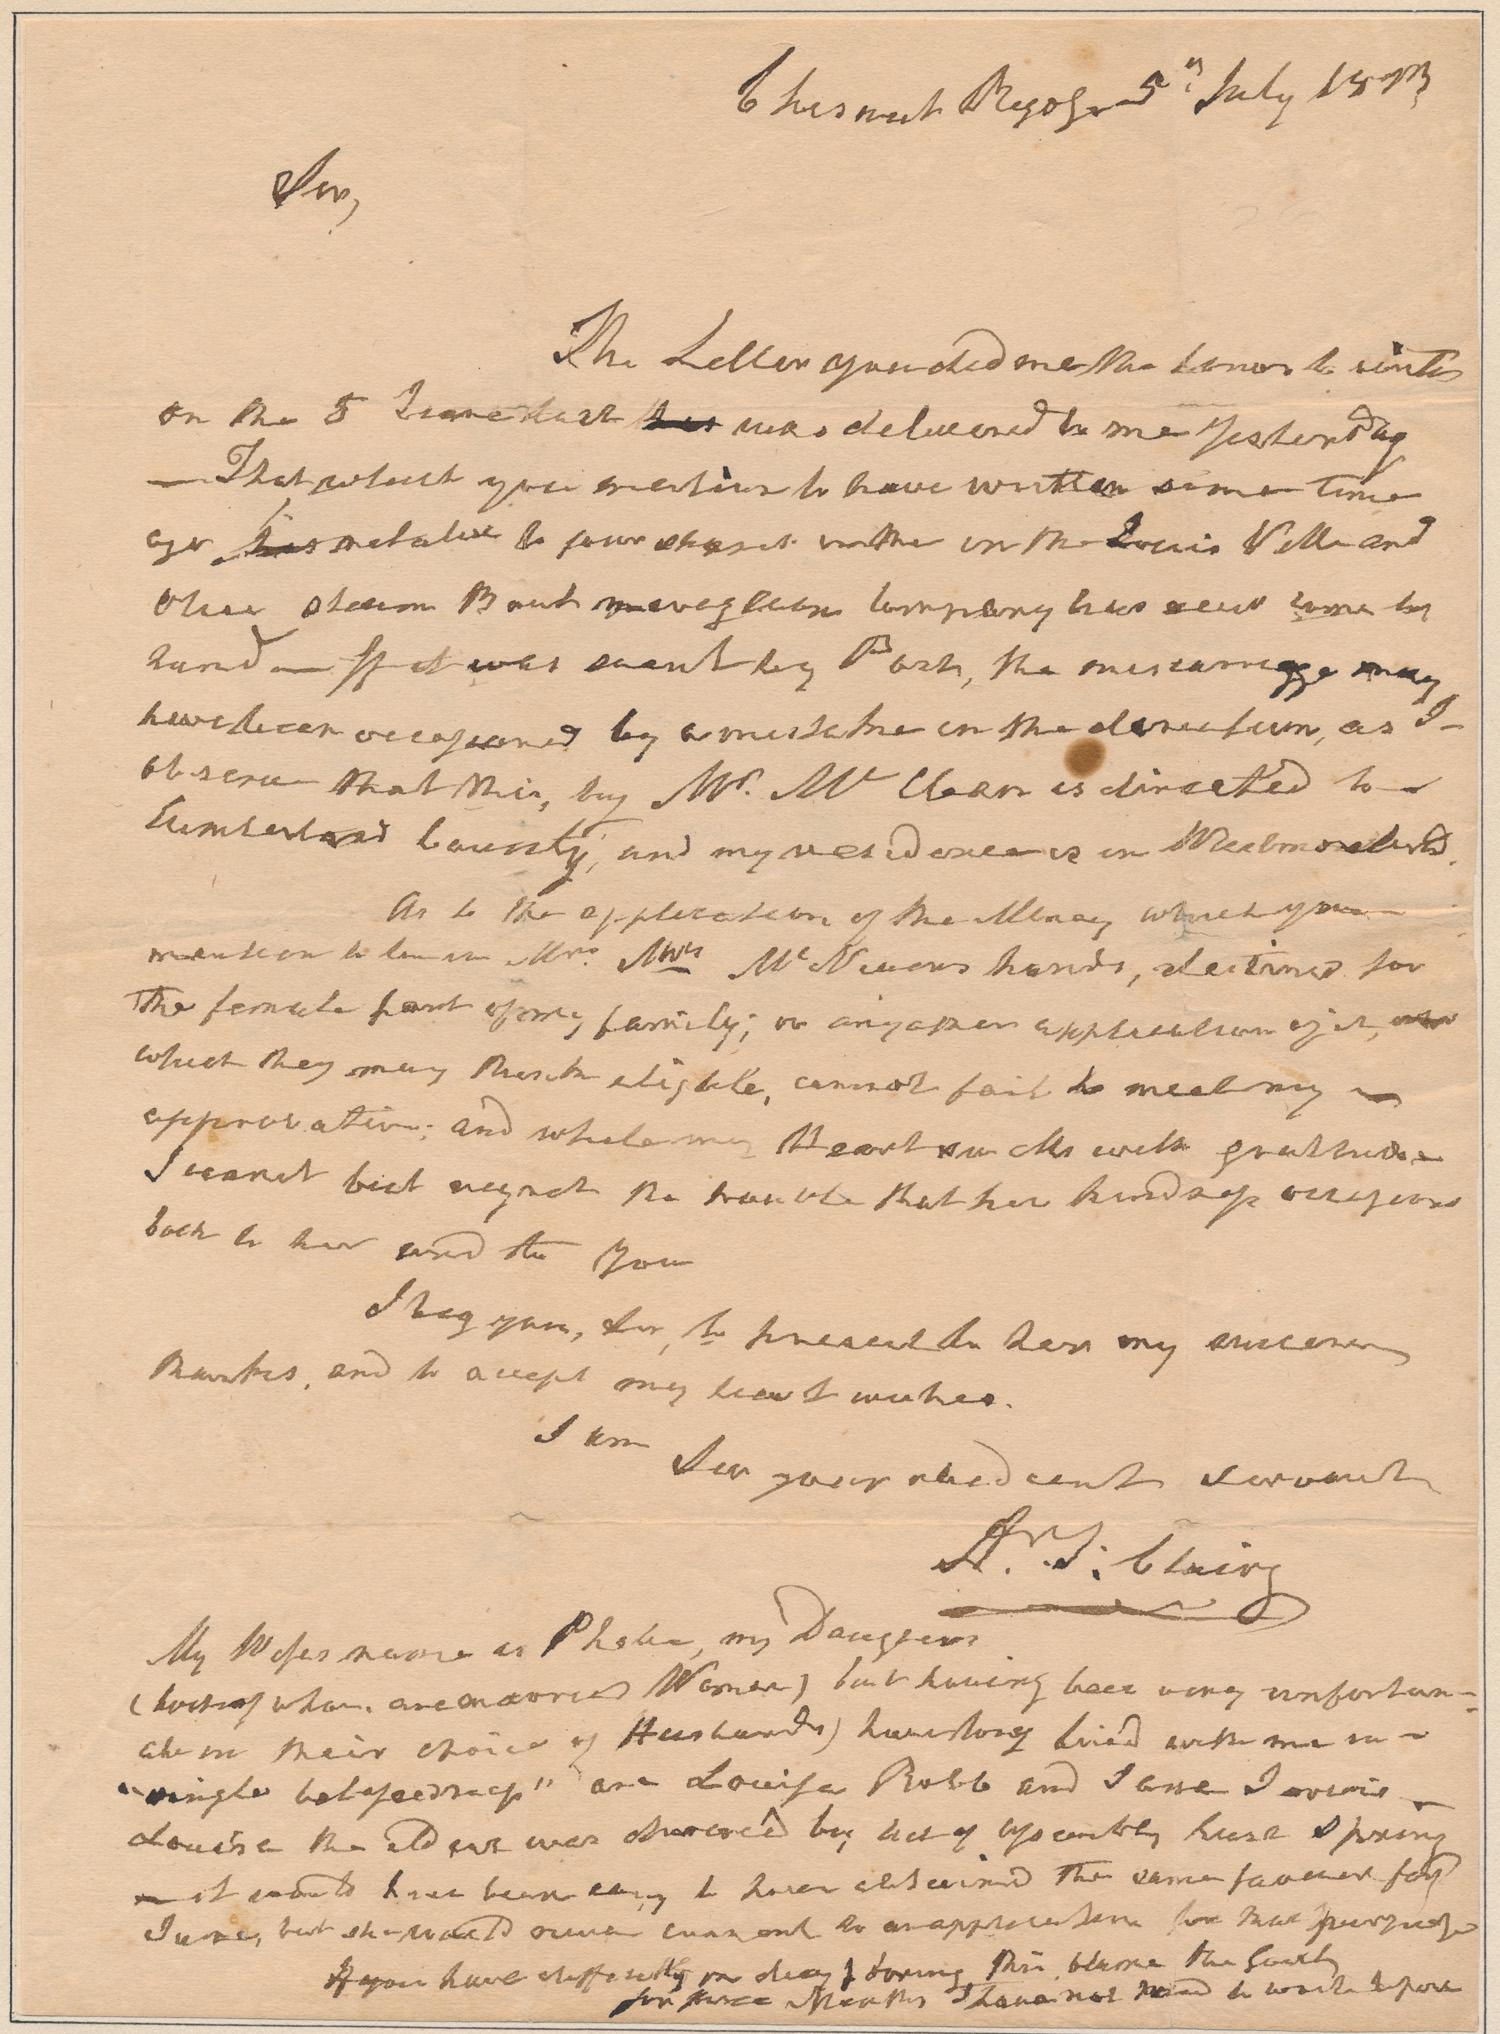 Chesnut Ridge 5th July 18
Sir,
The Letter you did me the honor to write
on the 5 June last was delivered to me Yesterday
— That which you mention to have written some time
ago relative to your in the Louis Ville and
Ohio Steam Boat navigation Company has never come to
hand — If it was sent by Post, the miscarriage may
have been occasioned by a mistake in the direction, as I
observe that this, by Mr. Mc Clean is directed to
Cumberland County, and my residence is in Westmoreland.
As to the application of the Money which you
mention to be in Mrs. Mc hands, destined for
the female part of my family; or any other application of it,
which they may think eligible, cannot fail to meet my
approbation; and while my Heart with gratitude
I cannot but regret the trouble that her kindness occasions
both to her and to You
I beg you, Sir, to present to her my sincere
thanks, and to accept my best wishes.
I am
Sir your obedient servant
Ar. St. Clair
My Wifes name is Phebe, my Daughters
(both of whom are married Women) but having been very unfortun-
ate in their choice of Husbands) have long lived with me in
"single blessedness" are Louisa Robb and Jane Jarvis
Louisa the eldest was divorced by act of Assembly last Spring
— it would have been easy to have obtained the same favour for
Jane, but she would never consent to an application for that purpose
If you have difficulty in decyphering this blame the Gout
for three Months I have not been able to write before